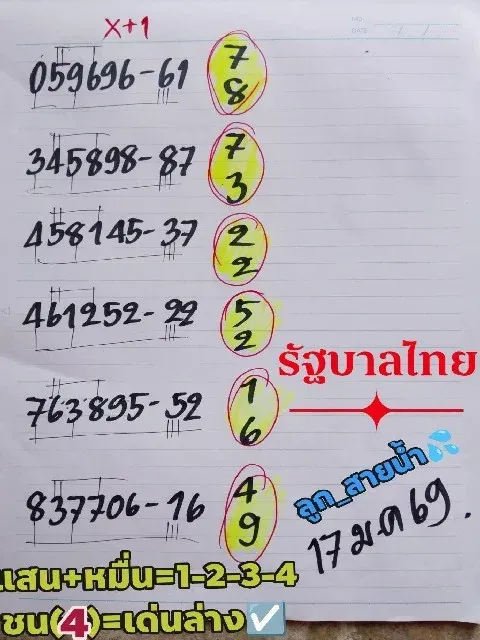 x+1
NO.
DATE
059696-61 7
8
345898-87 7
3
458145-37 2
2
461252-22 5
2
รัฐบาลไทย
763895-52 1
6
ลูก_สายน้ำ💦
837706-16 4
9
17 ม.ค 69.
แสน+หมื่น=1-2-3-4
ชน(4)=เด่นล่าง☑